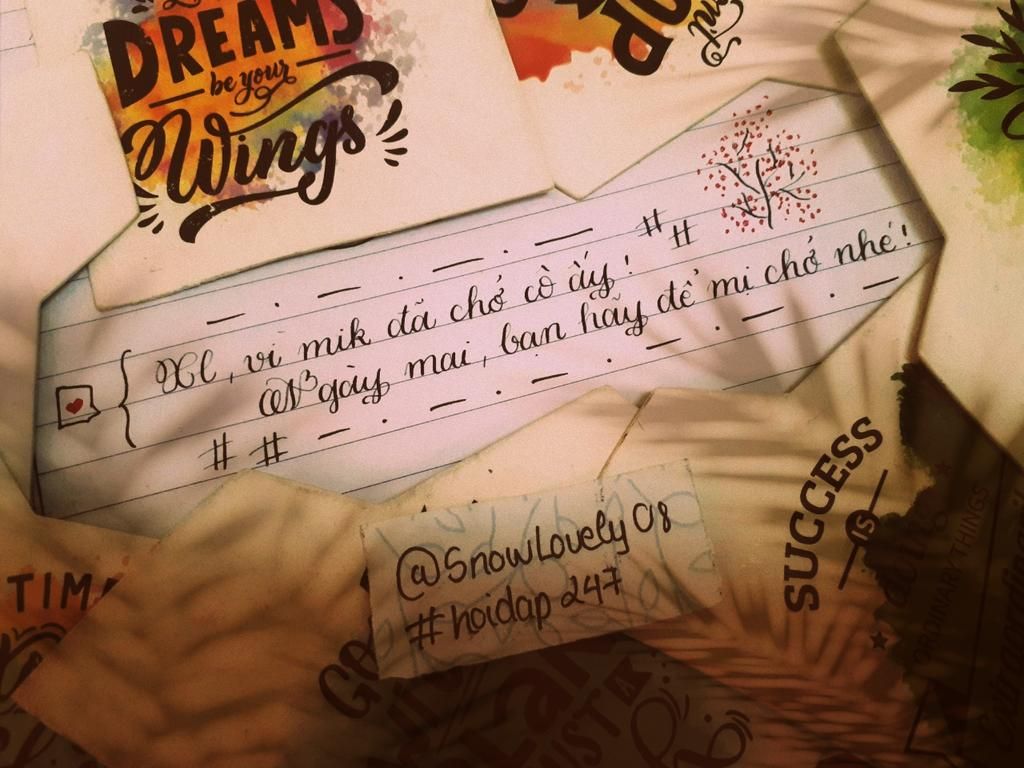 DREAMS
be your
Wings
# #
Xl, vì mik đã chở cò ấy!
Ngày mai, bạn hãy để mị chở nhé!
# #
@SnowLovely08
#hoidap247
SUCCESS
IS
ORDINARY THINGS
TIM